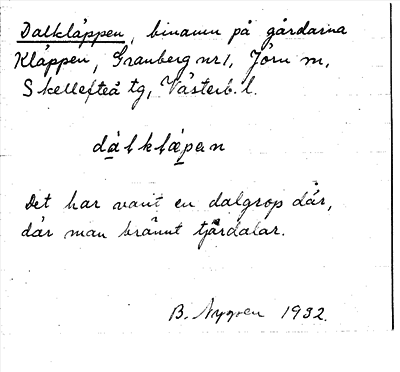 Dalkläppen, binamn på gårdarna
Kläppen, Granberg nr 1, Jörn sn,
Skellefteå tg, Västerb. l.
dalklæpen
Det har varit en dalgrop där,
där man bränt tjärdalar.
B. Nygren 1932.